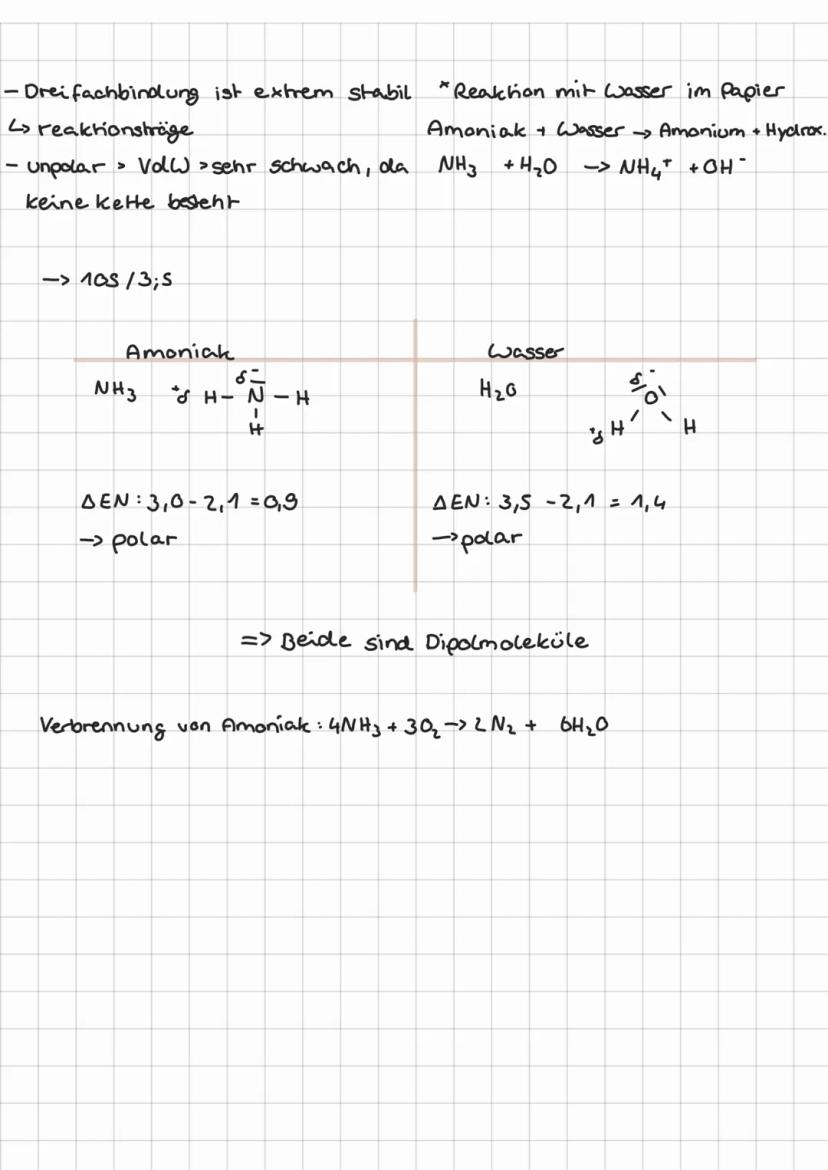 - Dreifachbindung ist extrem stabil
↳ reaktionsträge
- unpolar > VdW > sehr schwach, da
keine Kette besteht
* Reaktion mit Wasser im Papier
Amoniak + Wasser → Amonium + Hydrox.
NH₃ + H₂O → NH₄⁺ + OH⁻
→ 105 / 3;5
Amoniak
NH₃ ⁺δ H - N - H δ⁻
H
ΔEN: 3,0 - 2,1 = 0,9
→ polar
Wasser
H₂O δ⁻ O
⁺δ H H
ΔEN: 3,5 - 2,1 = 1,4
→ polar
=> Beide sind Dipolmoleküle
Verbrennung von Amoniak: 4NH₃ + 3O₂ → 2N₂ + 6H₂O